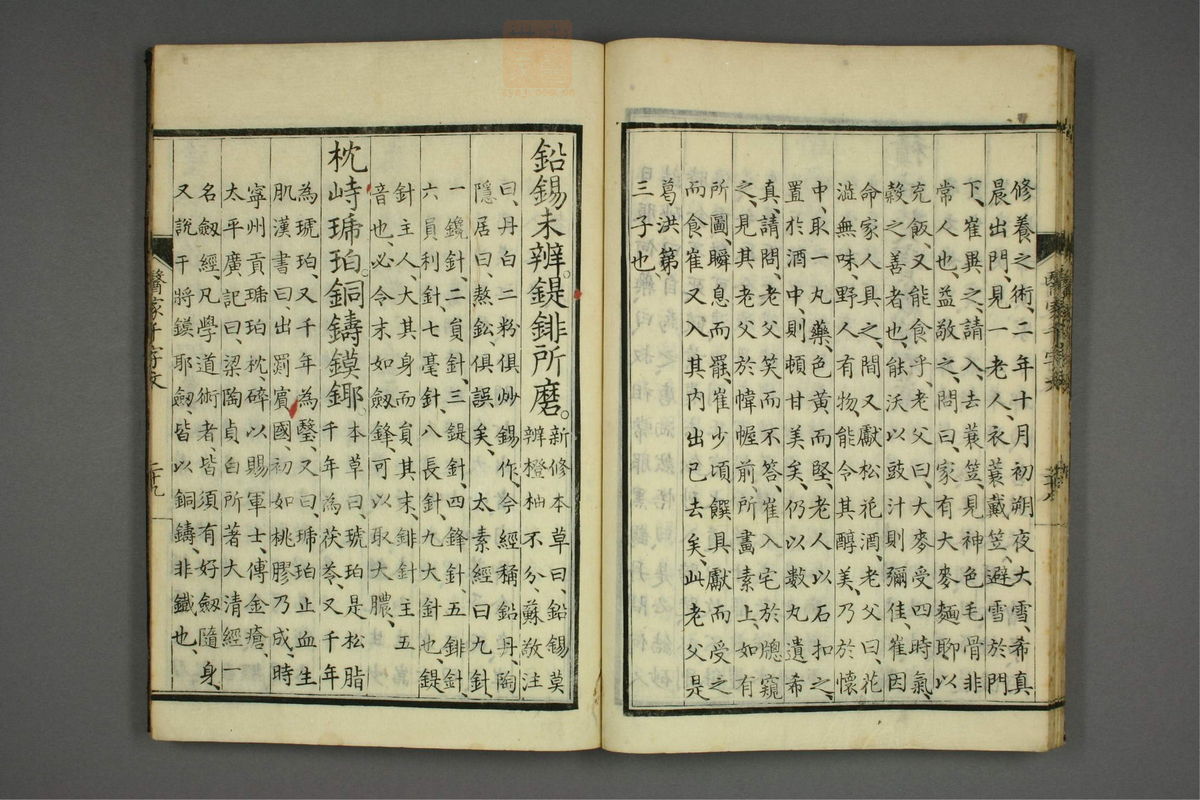 修養之術、二年十月初朔夜大雪、希真
晨出門、見一老人、衣蓑戴笠、避雪於門
下、崔異之、請入、去蓑笠、見神色毛骨非
常人也、益敬之、問曰、家有大麥麵、聊以
充飯、又能食乎、老父曰、大麥受四時氣、
穀之善者也、能沃以豉汁則彌佳、崔因
命家人具之、間又獻松花酒、老父曰、花
澁無味、野人有物、能令其醇美、乃於懷
中、取一丸藥、色黃而堅、老人以石扣之、
置於酒中、則頓甘美矣、仍以數丸遺希
真、請問、老父笑而不答、崔入宅於牕窺
之、見其老父於幃幄前、所畫素上、如有
所圖、瞬息而罷、崔少頃饌具獻、而受之
而食、崔又入其內、出已去矣、此老父是
葛洪第
三子也、
鉛錫未辨。鍉鋍所磨。新修本草曰、鉛錫莫
辨、橙柚不分、蘇敬注
曰、丹白二粉、俱炒錫作、今經稱鉛丹、陶
隱居曰、熬鈆、俱誤矣、太素經曰、九針、
一鑱針、二員針、三鍉針、四鋒針、五鈹針、
六員利針、七毫針、八長針、九大針也、鍉
針主人、大其身而員其末、鈹針主五
音也、必令末如劔鋒、可以取大膿、
枕峙琥珀。銅鑄鏌鎁。本草曰、琥珀是松脂
千年為茯苓、又千年
為琥珀、又千年為瑿、又曰、琥珀止血生
肌、漢書曰、出罽賓國、初如桃膠乃成、時
寧州貢琥珀枕、碎以賜軍士、傅金瘡、
太平廣記曰、梁陶貞白所著、大清經一
名劔經、凡學道術者、皆須有好劔隨身、
又說干將鏌耶劔、皆以銅鑄、非鐵也、
醫家千字文
二十九